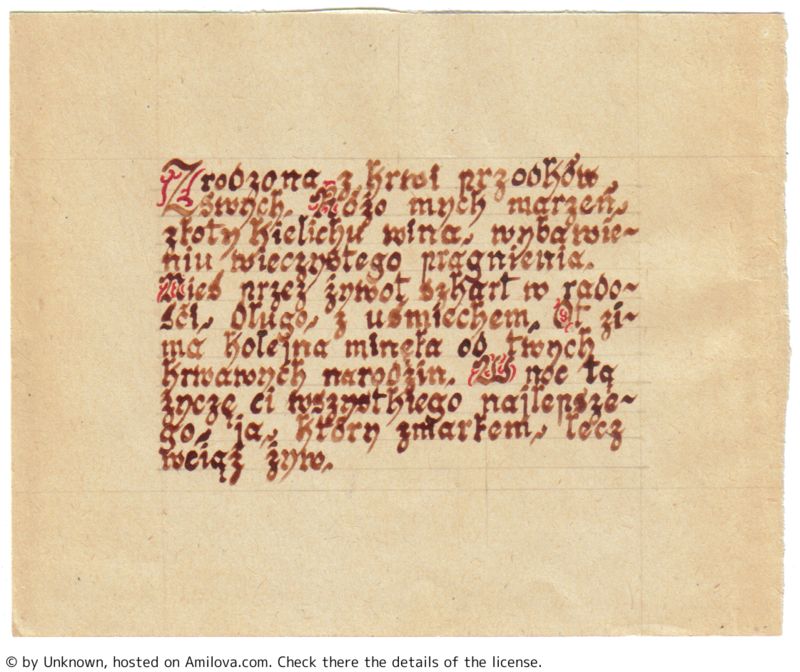 Zrodzona z krwi przodków
swych. Różo mych marzeń,
złoty kielichu wina, wybawie-
niu wieczystego pragnienia.
Nieś przez żywot szkarł w rado-
ści, długo, z uśmiechem. Ot zi-
ma kolejna minęła od twych
krwawych narodzin. W noc tą
życzę ci wszystkiego najlepsze-
go, ja, który zmarłem, lecz
wciąż żyw.
© by Unknown, hosted on Amilova.com. Check there the details of the license.